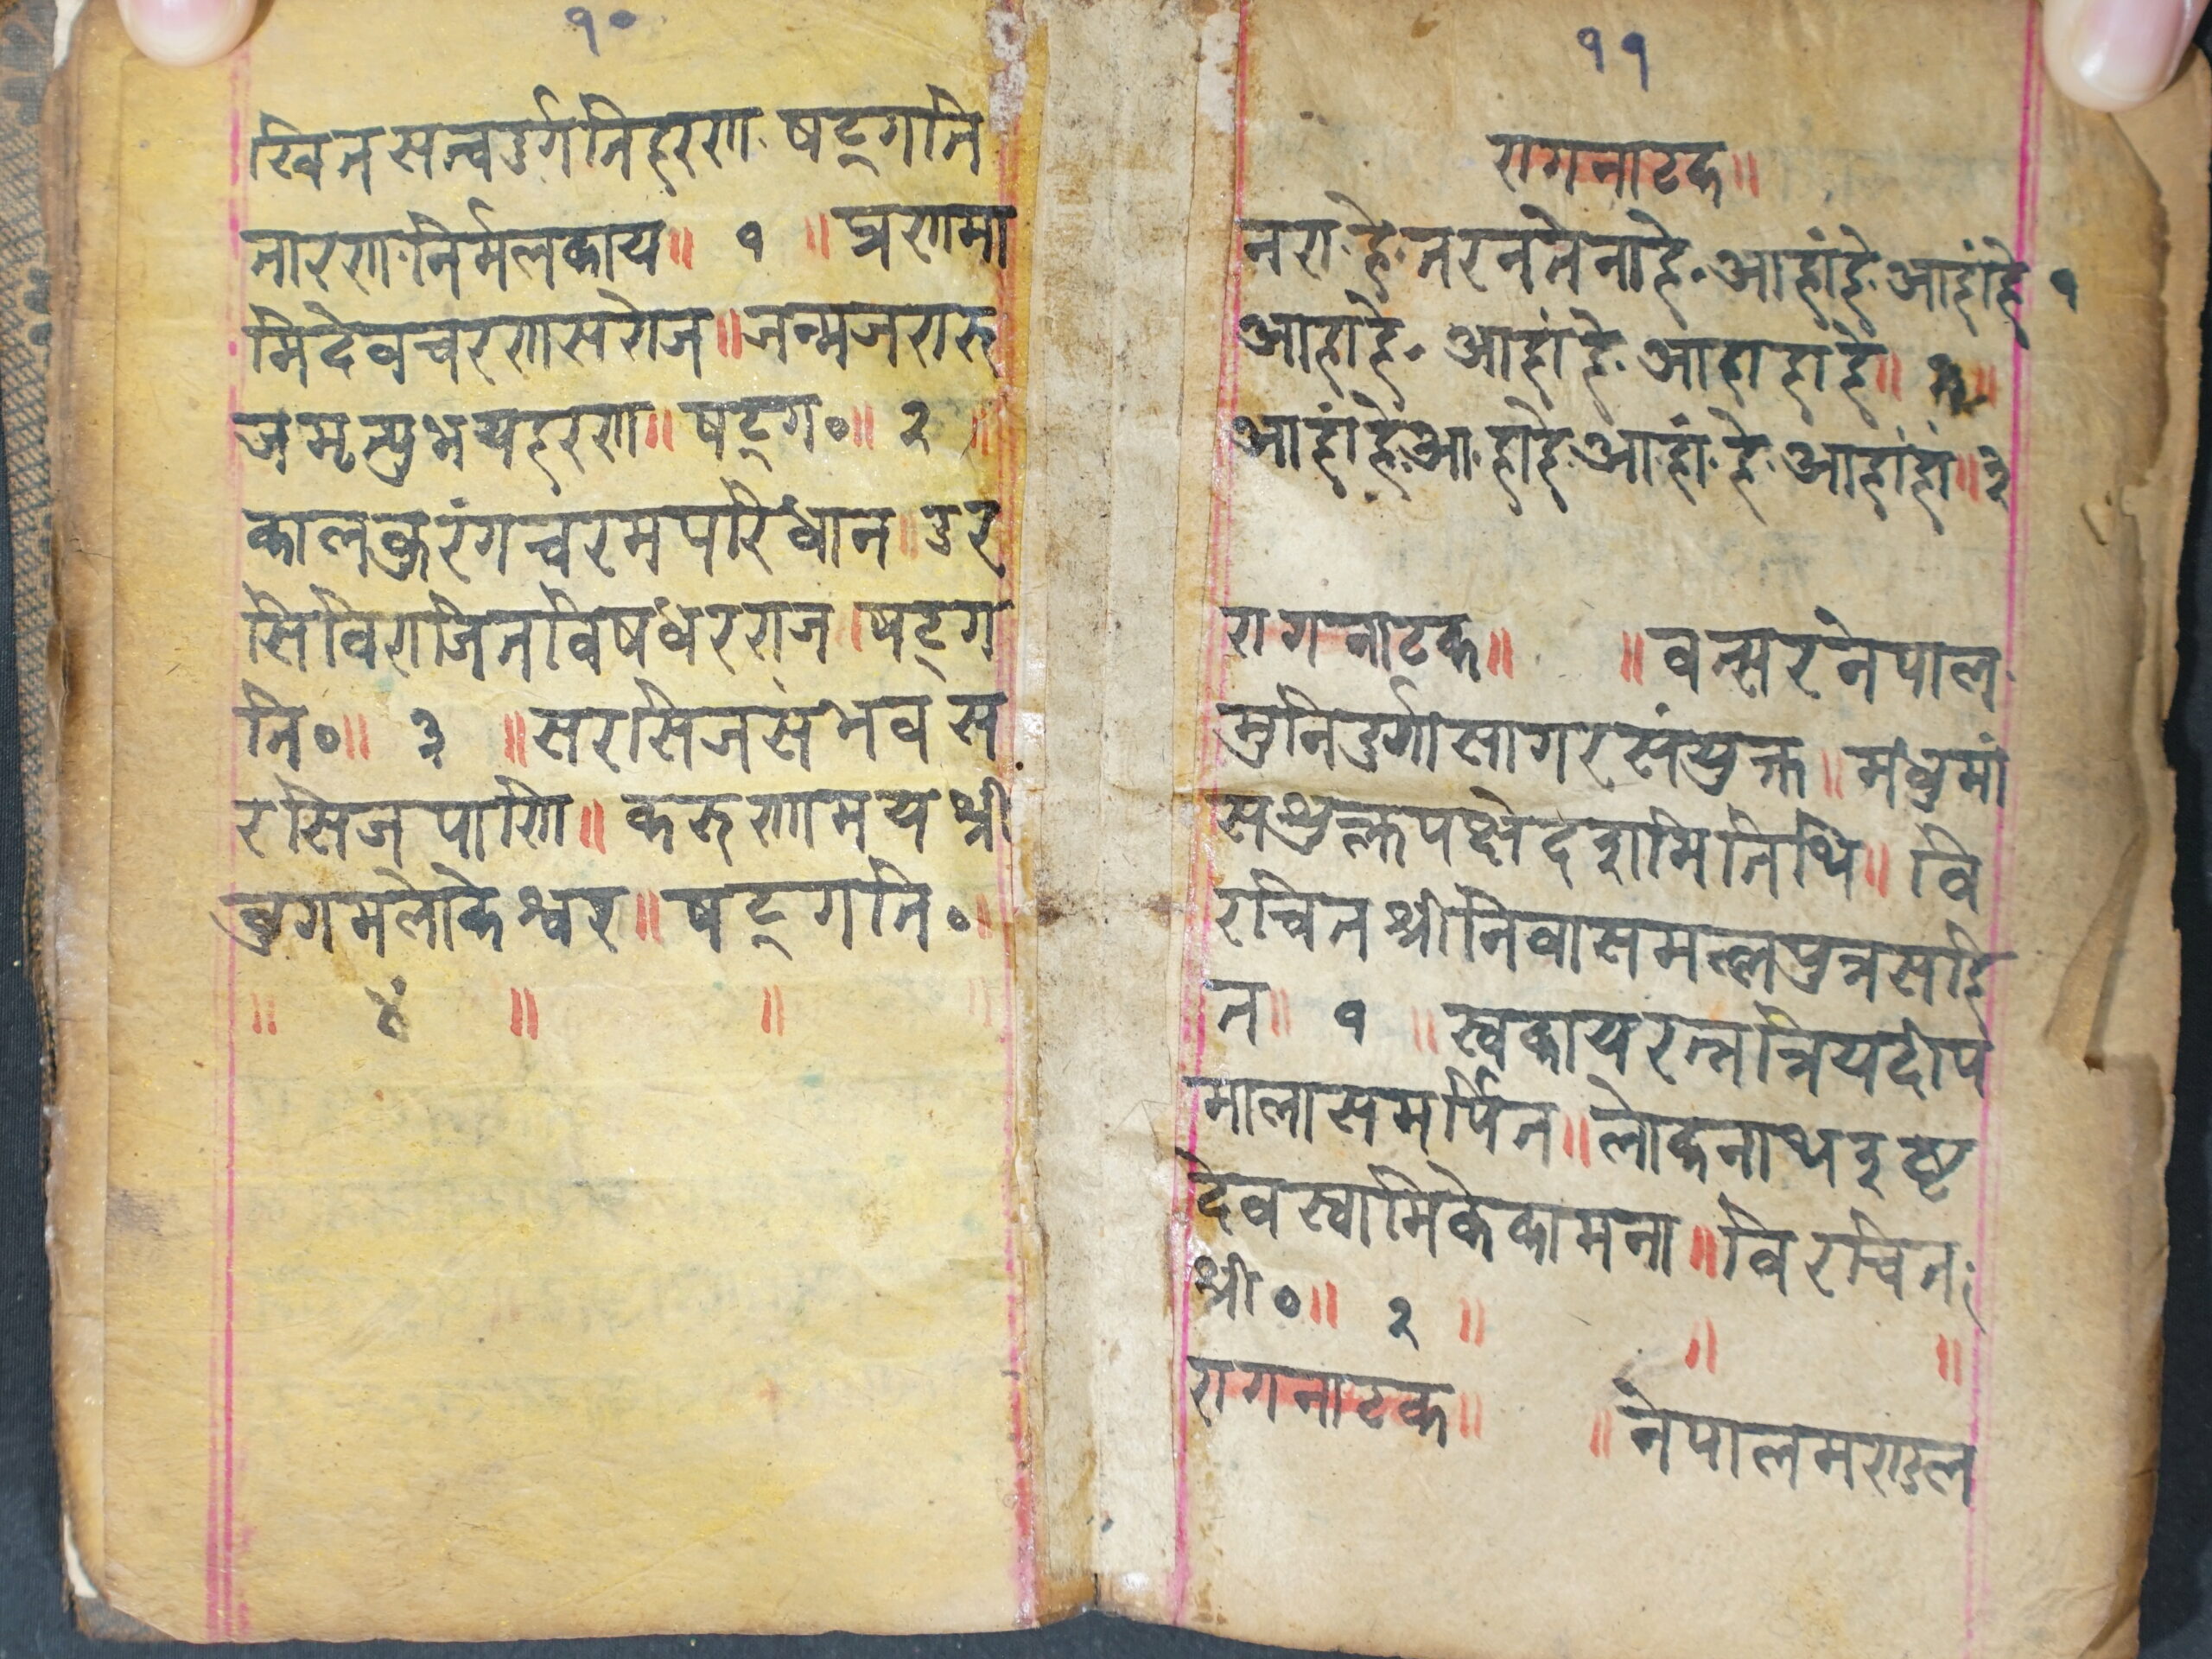 १०
खिनसत्वदुर्गतिहरण षट्गति
तारण निर्मलकाय॥ १ ॥प्रणमा
मिदेवचरणसरोज॥जन्मजरारु
जमृत्युभयहरण॥षट्ग०॥ २ ॥
कालकुरंगचरमपरिधान॥उर
सिविराजितविषधरराज॥षट्ग
ति०॥ ३ ॥सरसिजसंभवस
रसिजपाणि॥करुणामयश्री
वुगमलोकेश्वर॥षट्गति०॥
॥ ४ ॥ ॥
११
रागनाटक॥
नरा हे नरनतेनाहे आहांहे आहांहे १
आहाहे आहांहे आहाहांहे॥ २॥
आहांहे आहाहे आहां हे आहांहां॥३
रागनाटक॥ ॥वत्सरनेपाल
मुनिदुर्गासागरसंयुक्त॥मधुमां
सशुक्लपक्षेदशमितिथि॥ वि
रचितश्रीनिवासमल्लपुत्रसहि
त॥ १ ॥स्वकायरत्नत्रियदीप
मालासमर्पित॥लोकनाथइष्ट
देवस्वामिकेकामना॥विरचित
श्री०॥ २ ॥ ॥ ॥
रागनाटक॥ ॥नेपालमण्डल